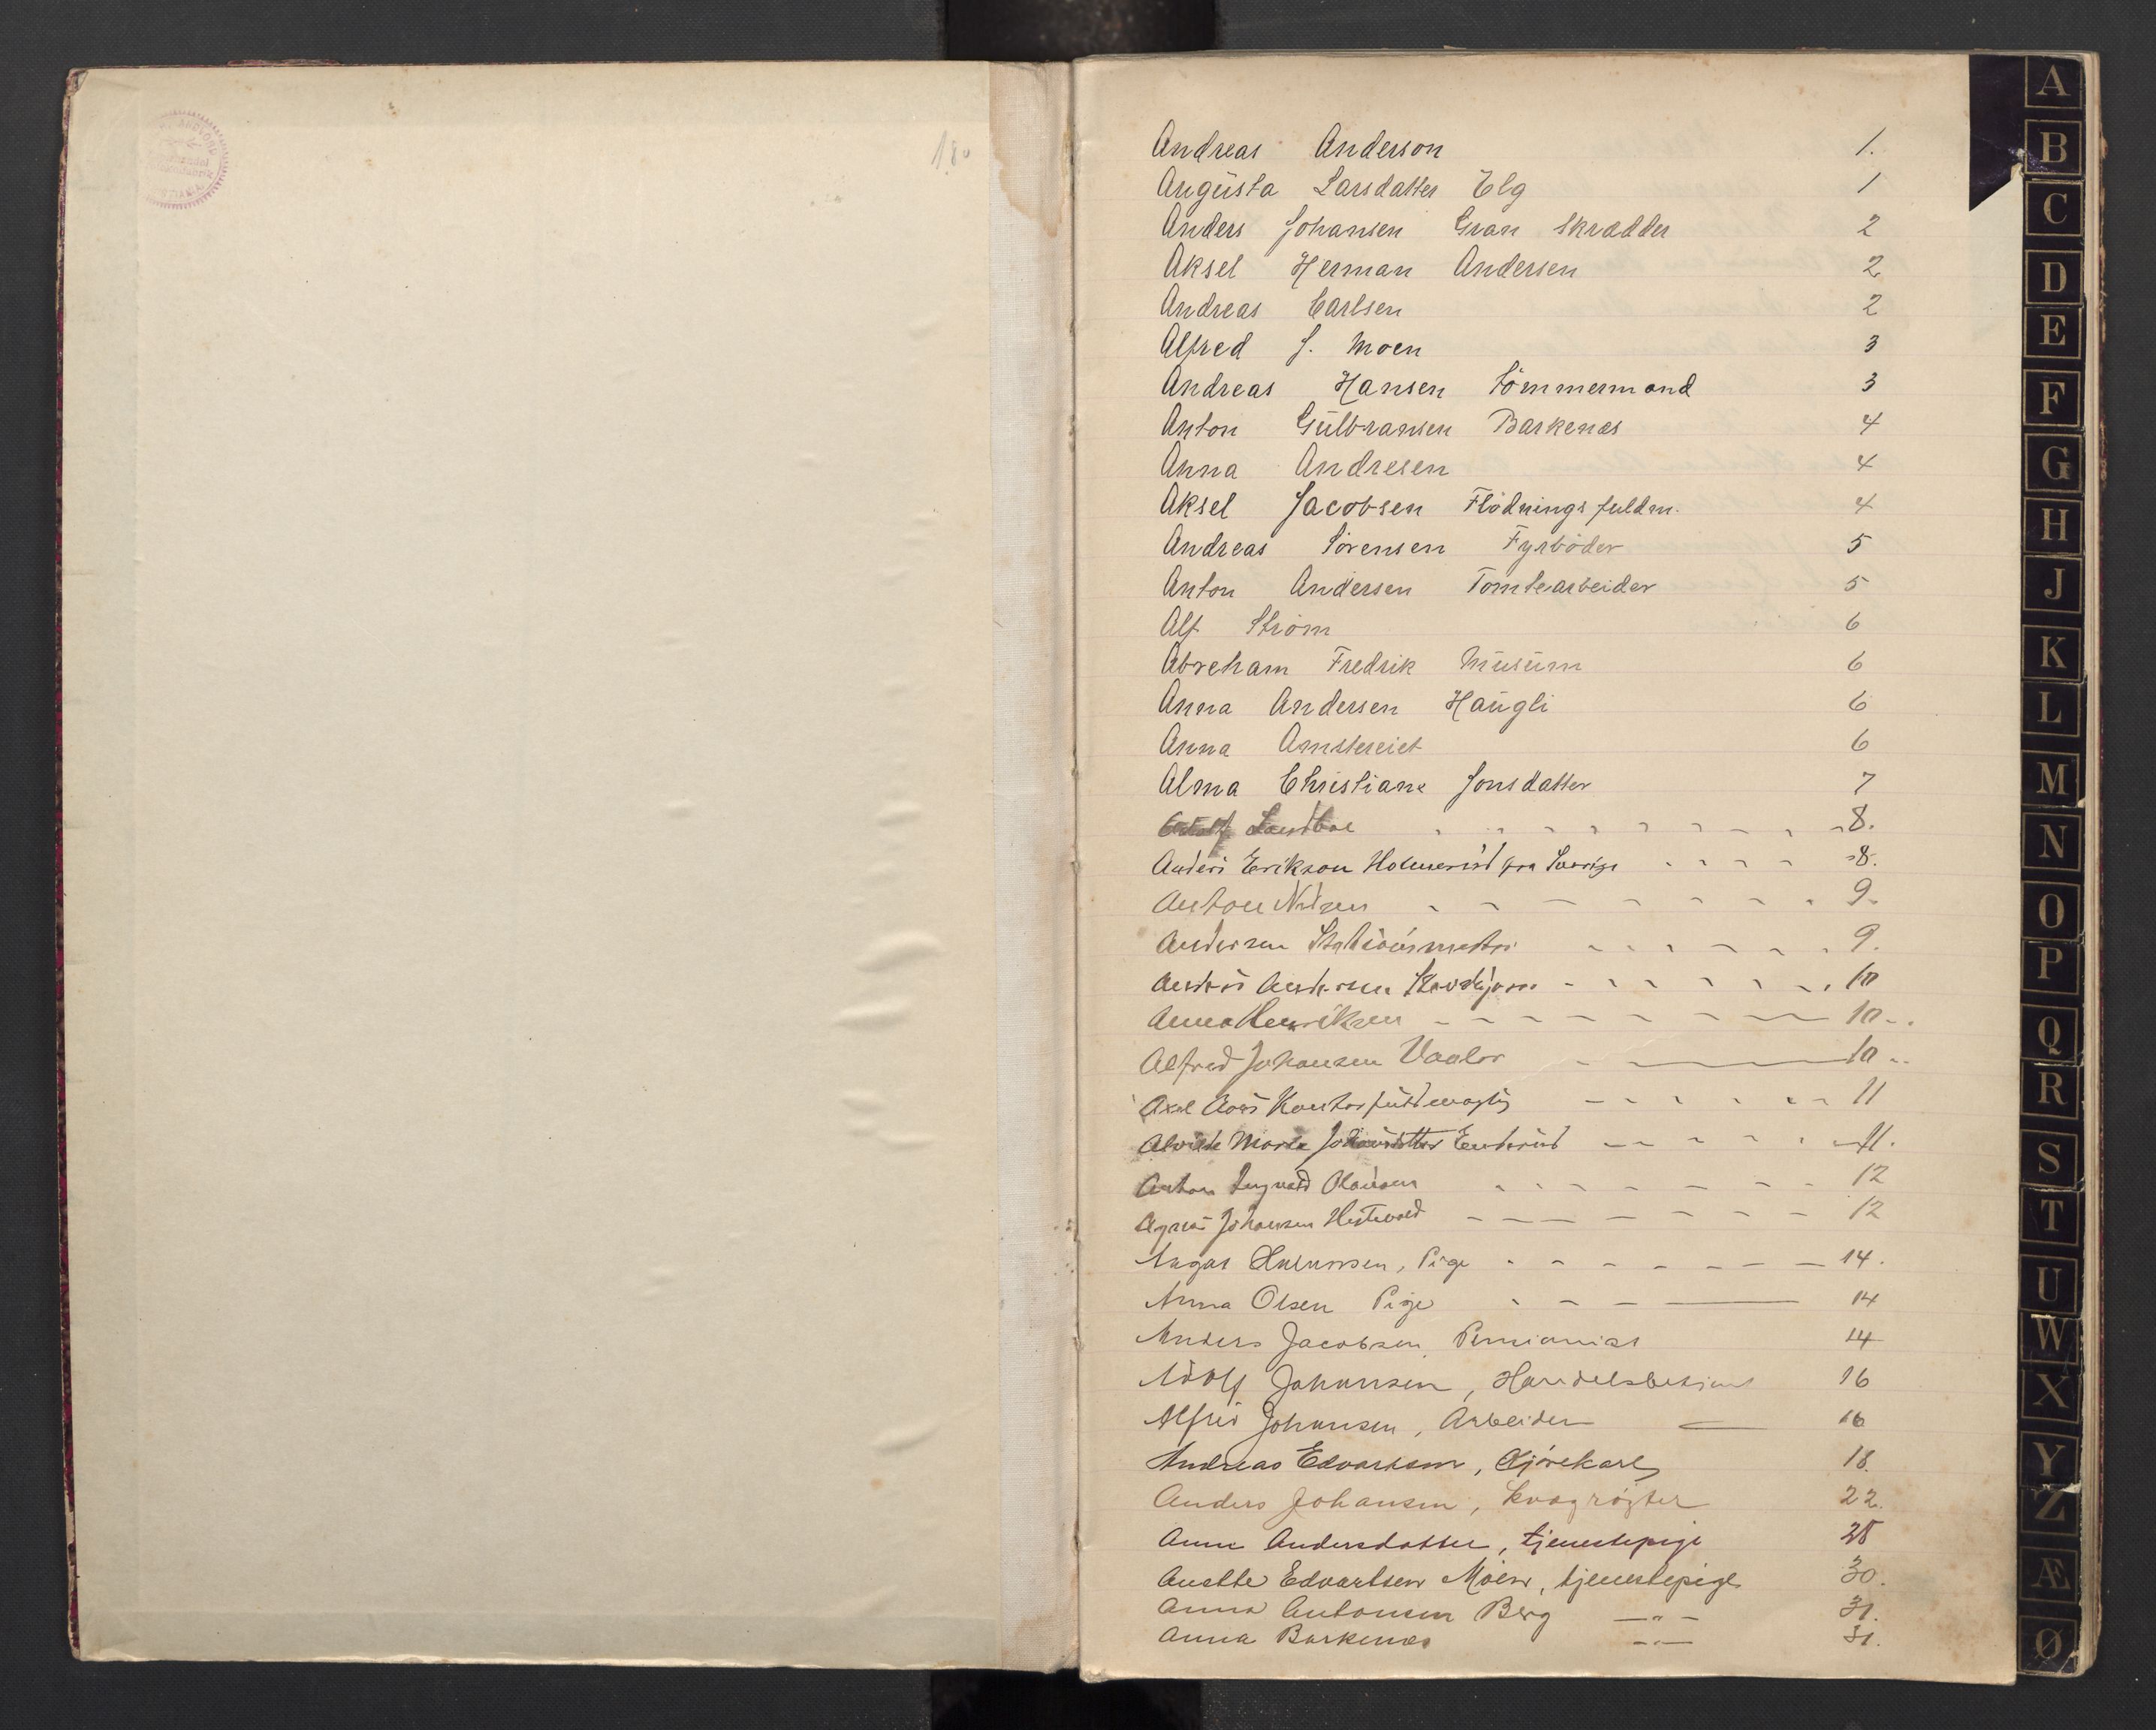 1.80
Andreas Anderson 1.
Augusta Larsdatter Elg 1
Anders Johansen Gran Skrædder 2
Aksel Herman Andersen 2
Andreas Carlsen 2
Alfred J. Moen 3
Andreas Hansen Tömmermand 3
Anton Gulbransen Barkenæs 4
Anna Andresen 4
Aksel Jacobsen Flödningsfuldm. 4
Andreas Sörensen Fyrböder 5
Anton Andersen Tomtearbeider 5
Alf Ström 6
Abreham Fredrik Musum 6
Anna Andersen Haugli 6
Anna Amstereiet 6
Alma Christiane Jonsdatter 7
8.
Anders Erikson Holmerud fra Sverige 8.
Anton Nilsen 9.
Andersen Stationsmester 9.
Anders Andersen 10
Anna Henriksen 10
Alfred Johansen Vaaler 10
Axel Aas Kontorfuldmægtig 11
Marie Johansdatter Enderud 11.
Anton Ingvald Olausen 12
Agnes Johansen Hestevold 12
Halvorsen, Pige 14.
Anna Olsen Pige 14
Anders Jacobsen, Pensionist 14
Adolf Johansen, Handelsbetjent 16
Alfred Johansen, Arbeider 16
Andreas Edvartsen, Kjörekarl 18.
Anders Johansen, kvægrögter 22.
Anne Andersdatter, tjenestepige 28
Anette Edvartsen Moen, tjenestepige 30.
Anna Antonsen Berg —"— 31.
Anna Barkenæs —"— 31.
A
B
C
D
E
F
G
H
J
K
L
M
N
O
P
Q
R
S
T
U
W
X
Y
Z
Æ
Ø